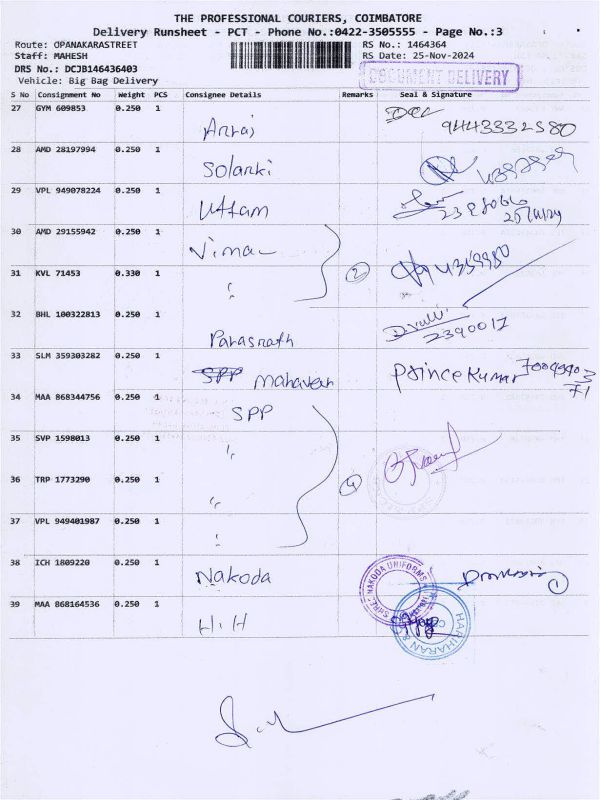 THE PROFESSIONAL COURIERS, COIMBATORE
Delivery Runsheet - PCT - Phone No.:0422-3505555 - Page No.:3
Route: OPANAKARASTREET RS No.: 1464364
Staff: MAHESH RS Date: 25-Nov-2024
DRS No.: DCJB146436403 DOCUMENT DELIVERY
Vehicle: Big Bag Delivery
S No Consignment No Weight PCS Consignee Details Remarks Seal & Signature
27 GYM 609853 0.250 1
9443332580
28 AMD 28197994 0.250 1 Solanki
29 VPL 949078224 0.250 1 Uttam
30 AMD 29155942 0.250 1 Vimal
31 KVL 71453 0.330 1 " 2
32 BHL 100322813 0.250 1 Parasnath 2390017
33 SLM 359303282 0.250 1 Prince Kumar
34 MAA 868344756 0.250 1 SPP
35 SVP 1598013 0.250 1 "
36 TRP 1773290 0.250 1 " 4
37 VPL 949401987 0.250 1 "
38 ICH 1809220 0.250 1 Nakoda SHREE NAKODA UNIFORMS 1
39 MAA 868164536 0.250 1 H.H HARIHARAN &